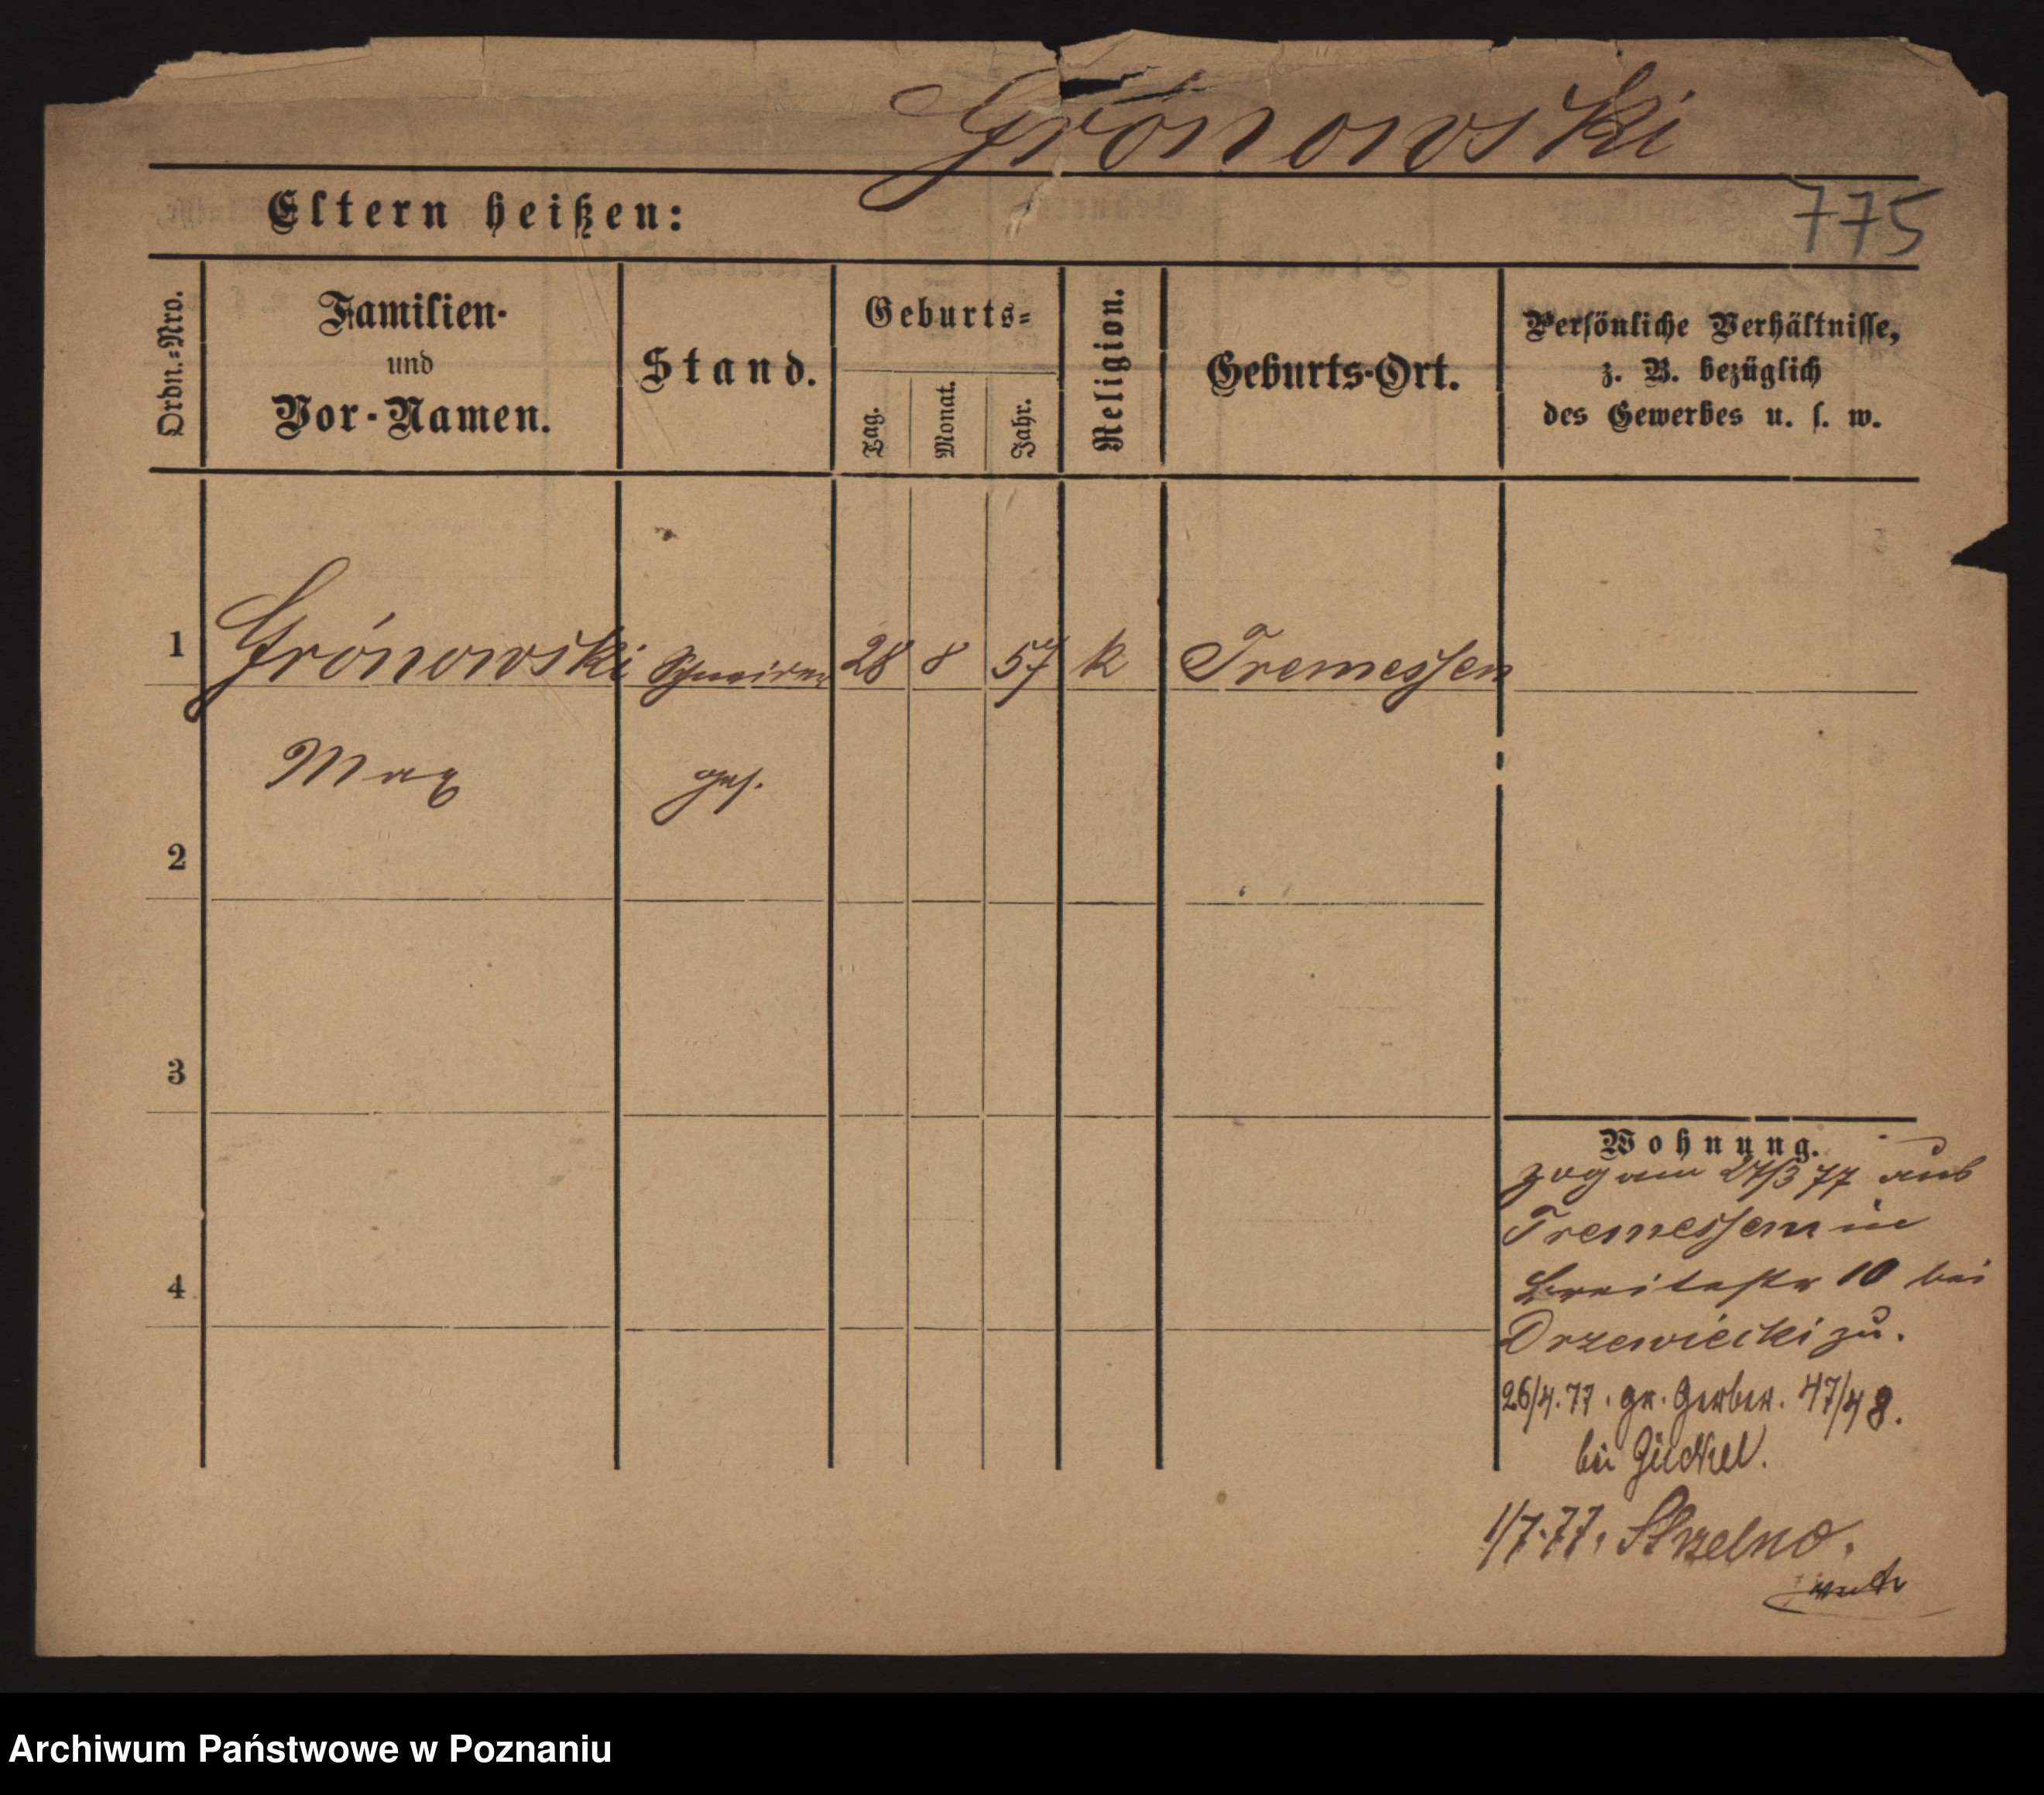 Grónowski
Eltern heißen:
775
Ordn.=Nro.
Familien-
und
Vor-Namen.
Stand.
Geburts=
Tag.
Monat.
Jahr.
Religion.
Geburts-Ort.
Persönliche Verhältnisse,
z. B. bezüglich
des Gewerbes u. s. w.
1 Grónowski Schneider 28 8 57 k Tremessen
Max ges.
2
3
4
Wohnung.
zog am 27/3 77 aus
Tremessen in
Breitestr 10 bei
Drzewiecki zu.
26/4.77. gr. Gerber. 47/48.
bei Jückel.
1/7.77. Strzelno.
Archiwum Państwowe w Poznaniu